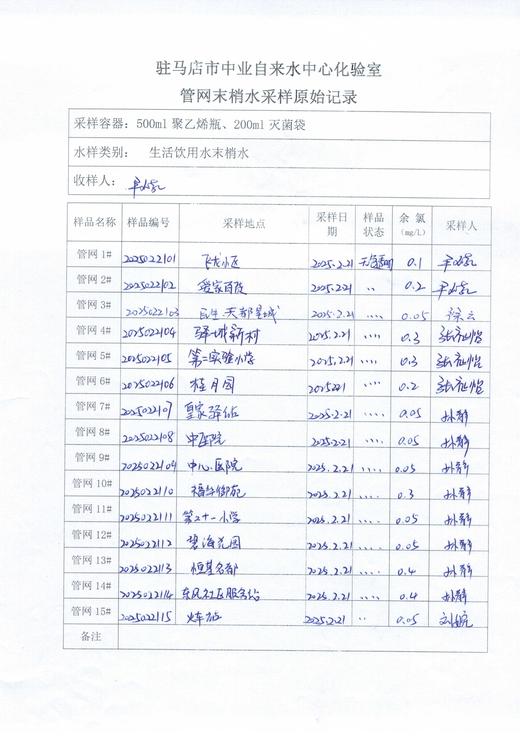 驻马店市中业自来水中心化验室
管网末梢水采样原始记录
采样容器：500ml 聚乙烯瓶、200ml 灭菌袋
水样类别： 生活饮用水末梢水
收样人：
样品名称 样品编号 采样地点 采样日期 样品状态 余氯（mg/L） 采样人
管网 1# 2025022101 飞龙小区 2025.2.21 无色透明 0.1
管网 2# 2025022102 爱家百度 2025.2.21 〃 0.2
管网 3# 2025022103 民生天都星城 2025.2.21 〃 0.05 徐云
管网 4# 2025022104 驿城新村 2025.2.21 〃 0.3
管网 5# 2025022105 第二实验小学 2025.2.21 〃 0.3
管网 6# 2025022106 桂月园 2025221 〃 0.2
管网 7# 2025022107 皇家驿站 2025.2.21 〃 0.05 孙静
管网 8# 2025022108 中医院 2025.2.21 〃 0.05 孙静
管网 9# 2025022109 中心医院 2025.2.21 〃 0.05 孙静
管网 10# 2025022110 御苑 2025.2.21 〃 0.3 孙静
管网 11# 2025022111 第二十一小学 2025.2.21 〃 0.05 孙静
管网 12# 2025022112 碧海花园 2025.2.21 〃 0.05 孙静
管网 13# 2025022113 恒基名都 2025.2.21 〃 0.4 孙静
管网 14# 2025022114 东风社区服务站 2025.2.21 〃 0.4 孙静
管网 15# 2025022115 火车站 2025.2.21 〃 0.05 刘航
备注